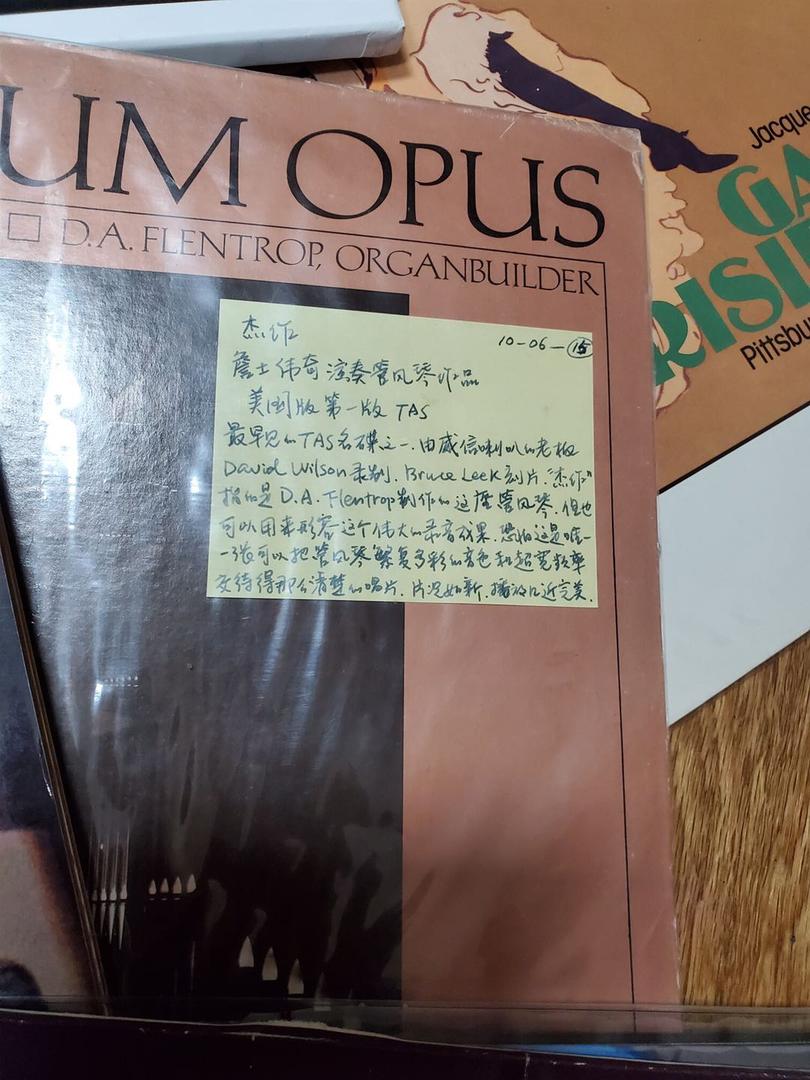 UM OPUS
□ D.A. FLENTROP, ORGANBUILDER
Jacque
GA
RISI
Pittsbu
杰作
10-06-15
詹士伟奇演奏管风琴作品
美国版第一版 TAS
最早见的TAS名碟之一. 由威信喇叭的老板
David Wilson录制. Bruce Leek刻片. "杰作"
指的是D.A. Flentrop制作的这座管风琴. 但也
可以用来形容这个伟大的录音成果. 恐怕这是唯一
一张可以把管风琴繁复多彩的音色和超宽频率
交待得那么清楚的唱片. 片况如新. 播放几近完美.